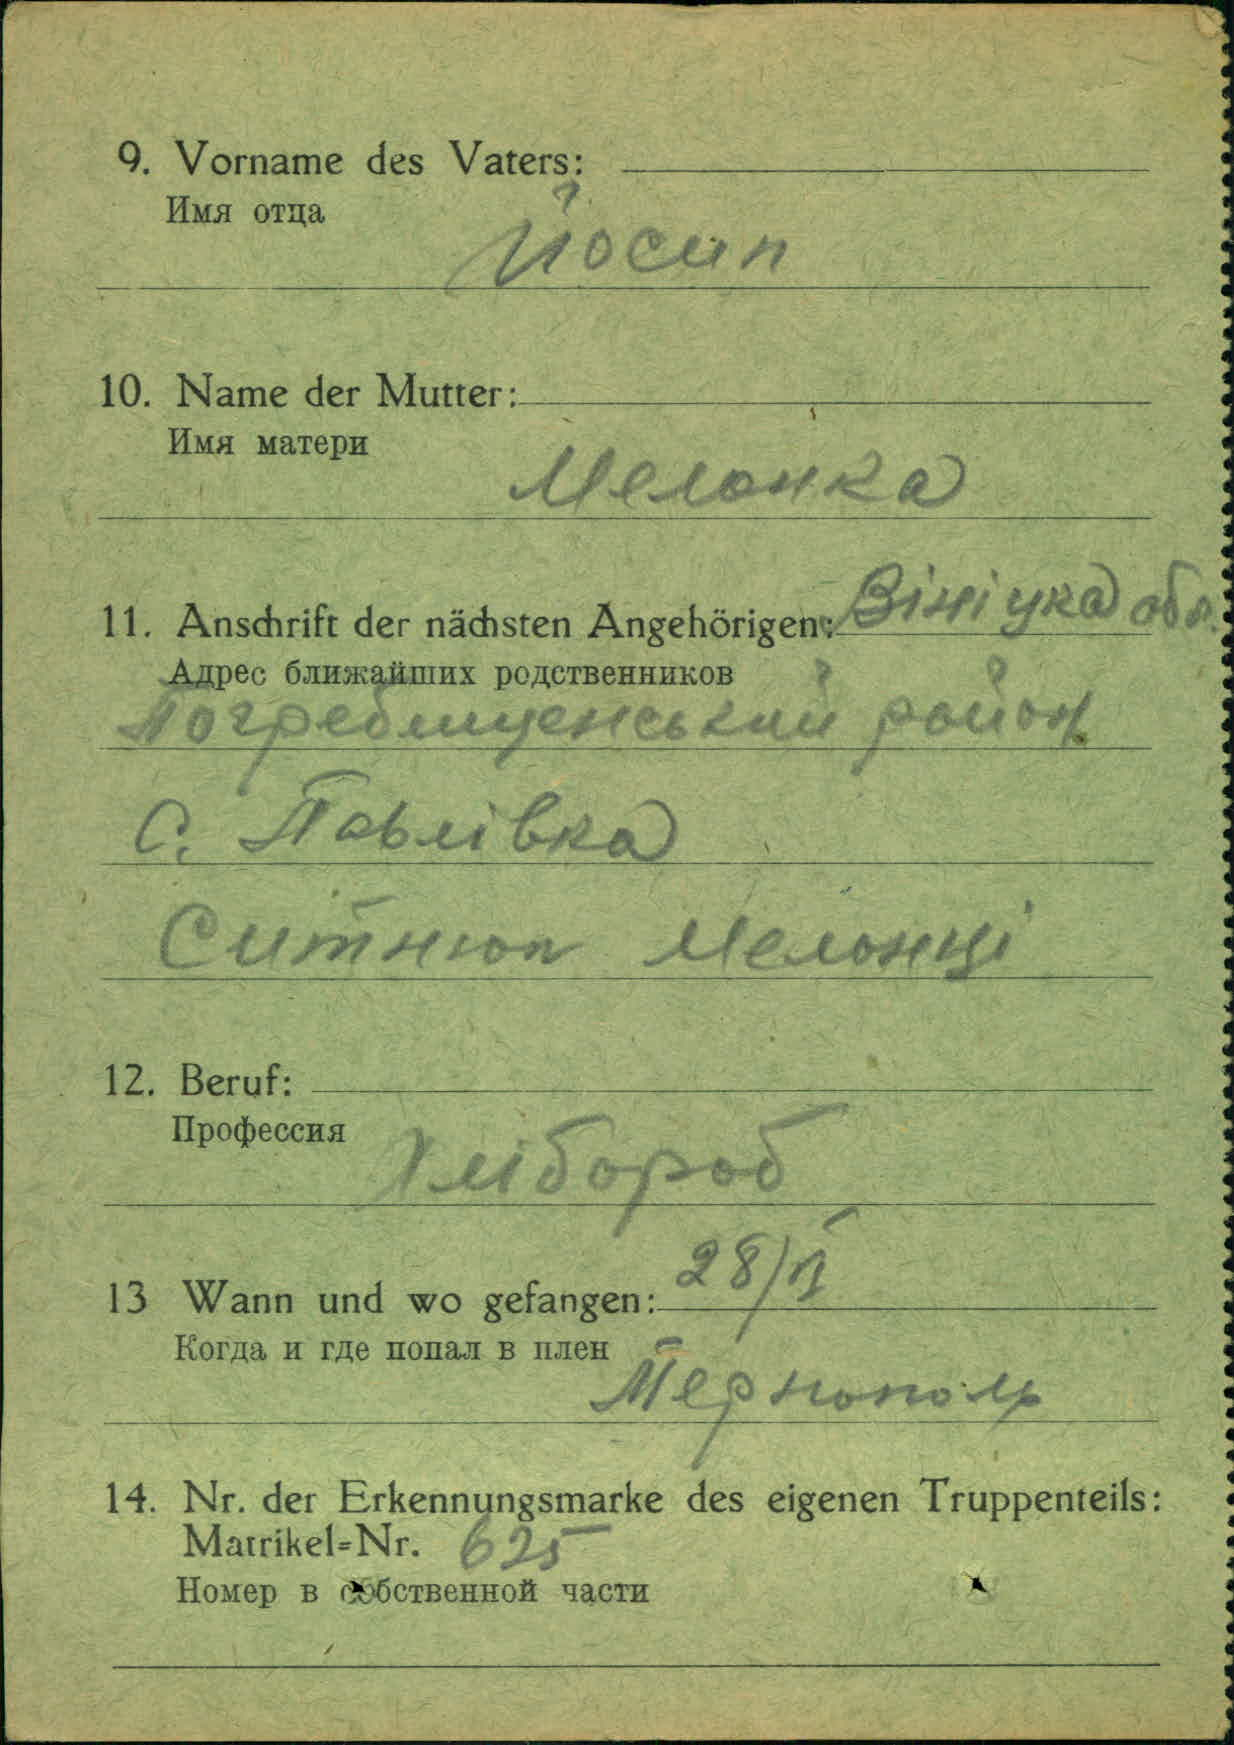 9. Vorname des Vaters:
Имя отца
Йосип
10. Name der Mutter:
Имя матери
Мелонка
11. Anschrift der nächsten Angehörigen: Вініцка обл.
Адрес ближайших родственников
Погребищенський район
с. Павлівка
Ситнюк Мелонці
12. Beruf:
Профессия
Хлібороб
13 Wann und wo gefangen: 28/
Когда и где попал в плен
Тернополь
14. Nr. der Erkennungsmarke des eigenen Truppenteils:
Matrikel=Nr. 625
Номер в собственной части